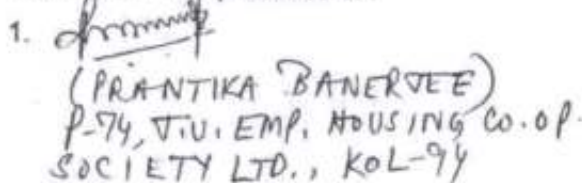 1.
(PRANTIKA BANERJEE)
P-74, J.U. EMP. HOUSING CO.OP.
SOCIETY LTD., KOL-94